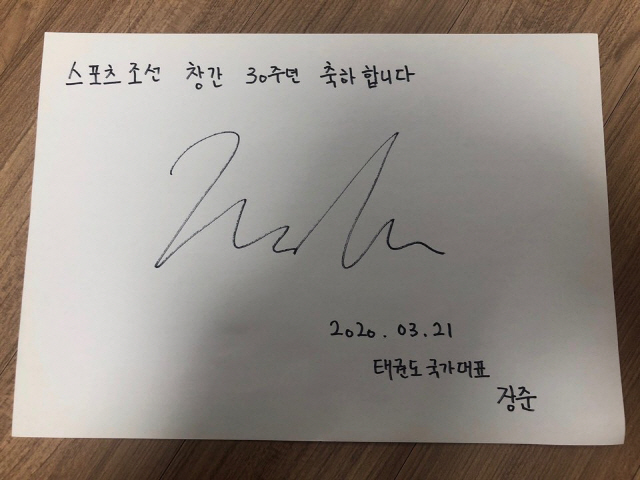 스포츠조선 창간 30주년 축하합니다
2020. 03. 21
태권도 국가대표
장준